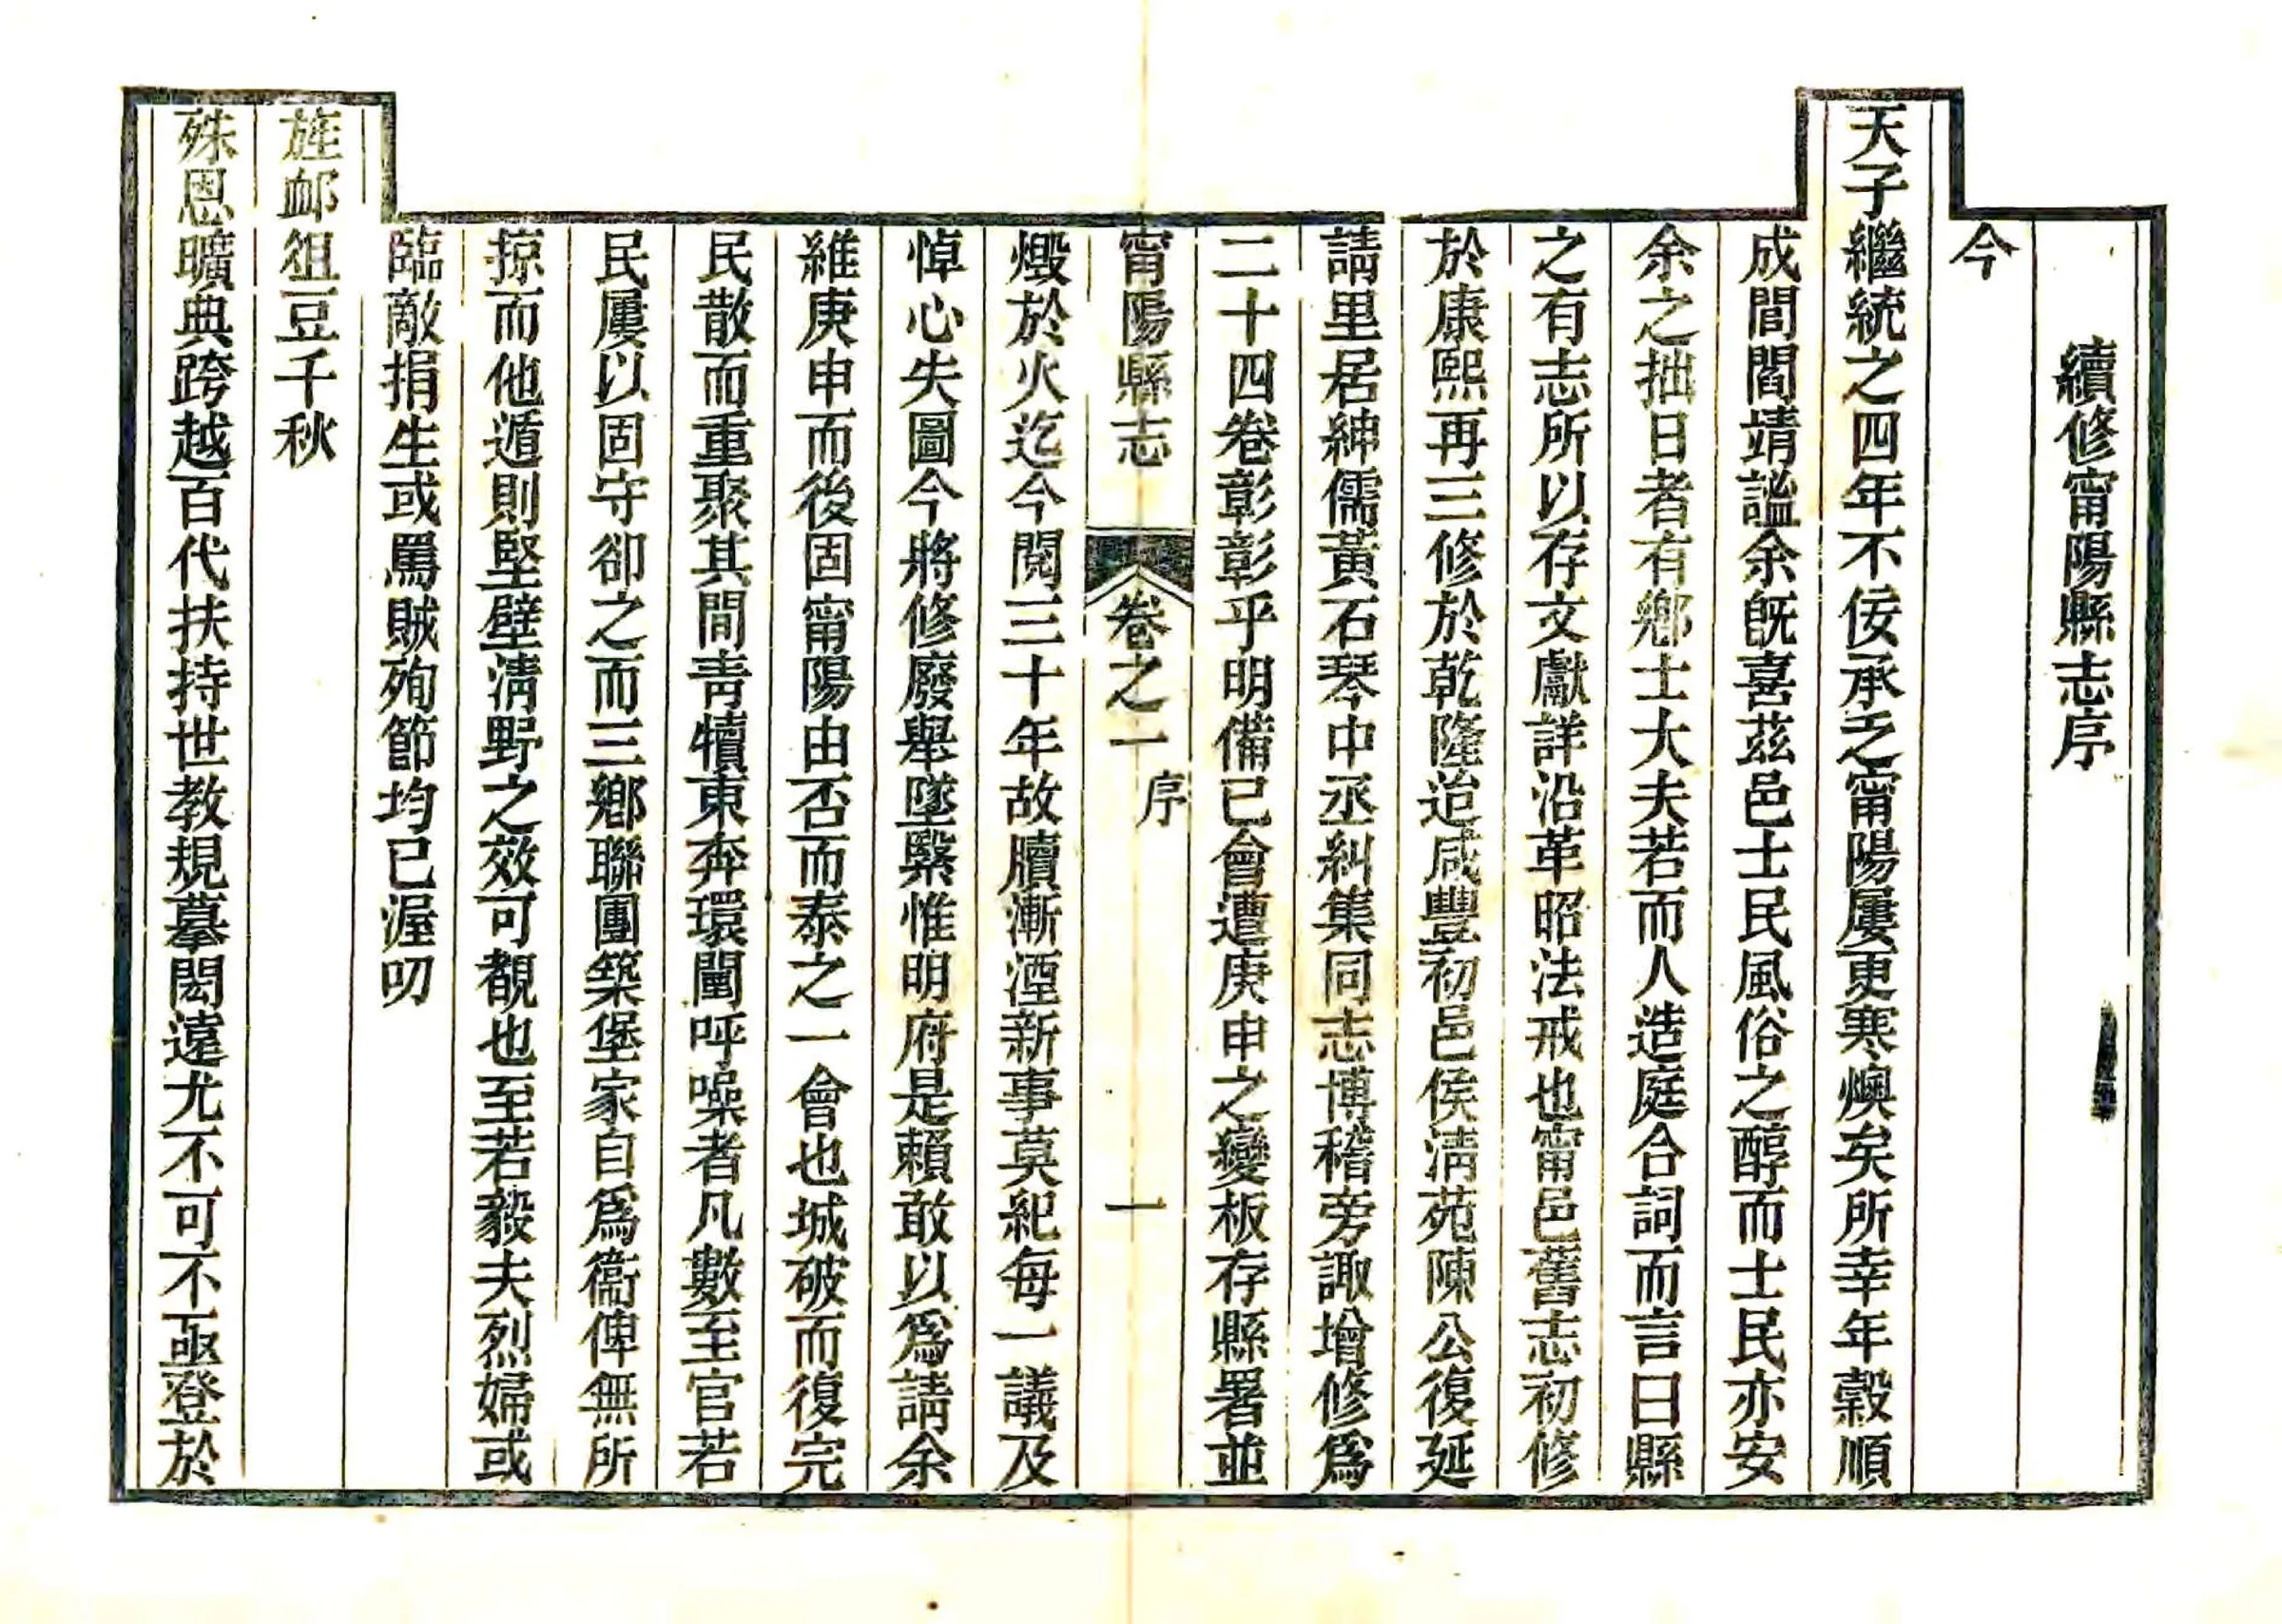 續修甯陽縣志序
今
天子繼統之四年不佞承乏甯陽屢更寒燠矣所幸年穀順
成閭閻靖謐余旣喜茲邑士民風俗之醇而士民亦安
余之拙日者有鄉士大夫若而人造庭合詞而言曰縣
之有志所以存文獻詳沿革昭法戒也甯邑舊志初修
於康熙再三修於乾隆迨咸豐初邑侯淸苑陳公復延
請里居紳儒黃石琴中丞糾集同志博稽旁諏增修爲
二十四卷彰彰乎明備已會遭庚申之變板存縣署並
甯陽縣志 卷之一 序 一
燬於火迄今閱三十年故牘漸湮新事莫紀每一議及
悼心失圖今將修廢舉墜緊惟明府是賴敢以爲請余
維庚申而後固甯陽由否而泰之一會也城破而復完
民散而重聚其間靑犢東奔環闉呼噪者凡數至官若
民屢以固守卻之而三鄉聯團築堡家自爲衞俾無所
掠而他遁則堅壁淸野之效可覩也至若毅夫烈婦或
臨敵捐生或罵賊殉節均已渥叨
旌䘏俎豆千秋
殊恩曠典跨越百代扶持世教規摹閎遠尤不可不亟登於